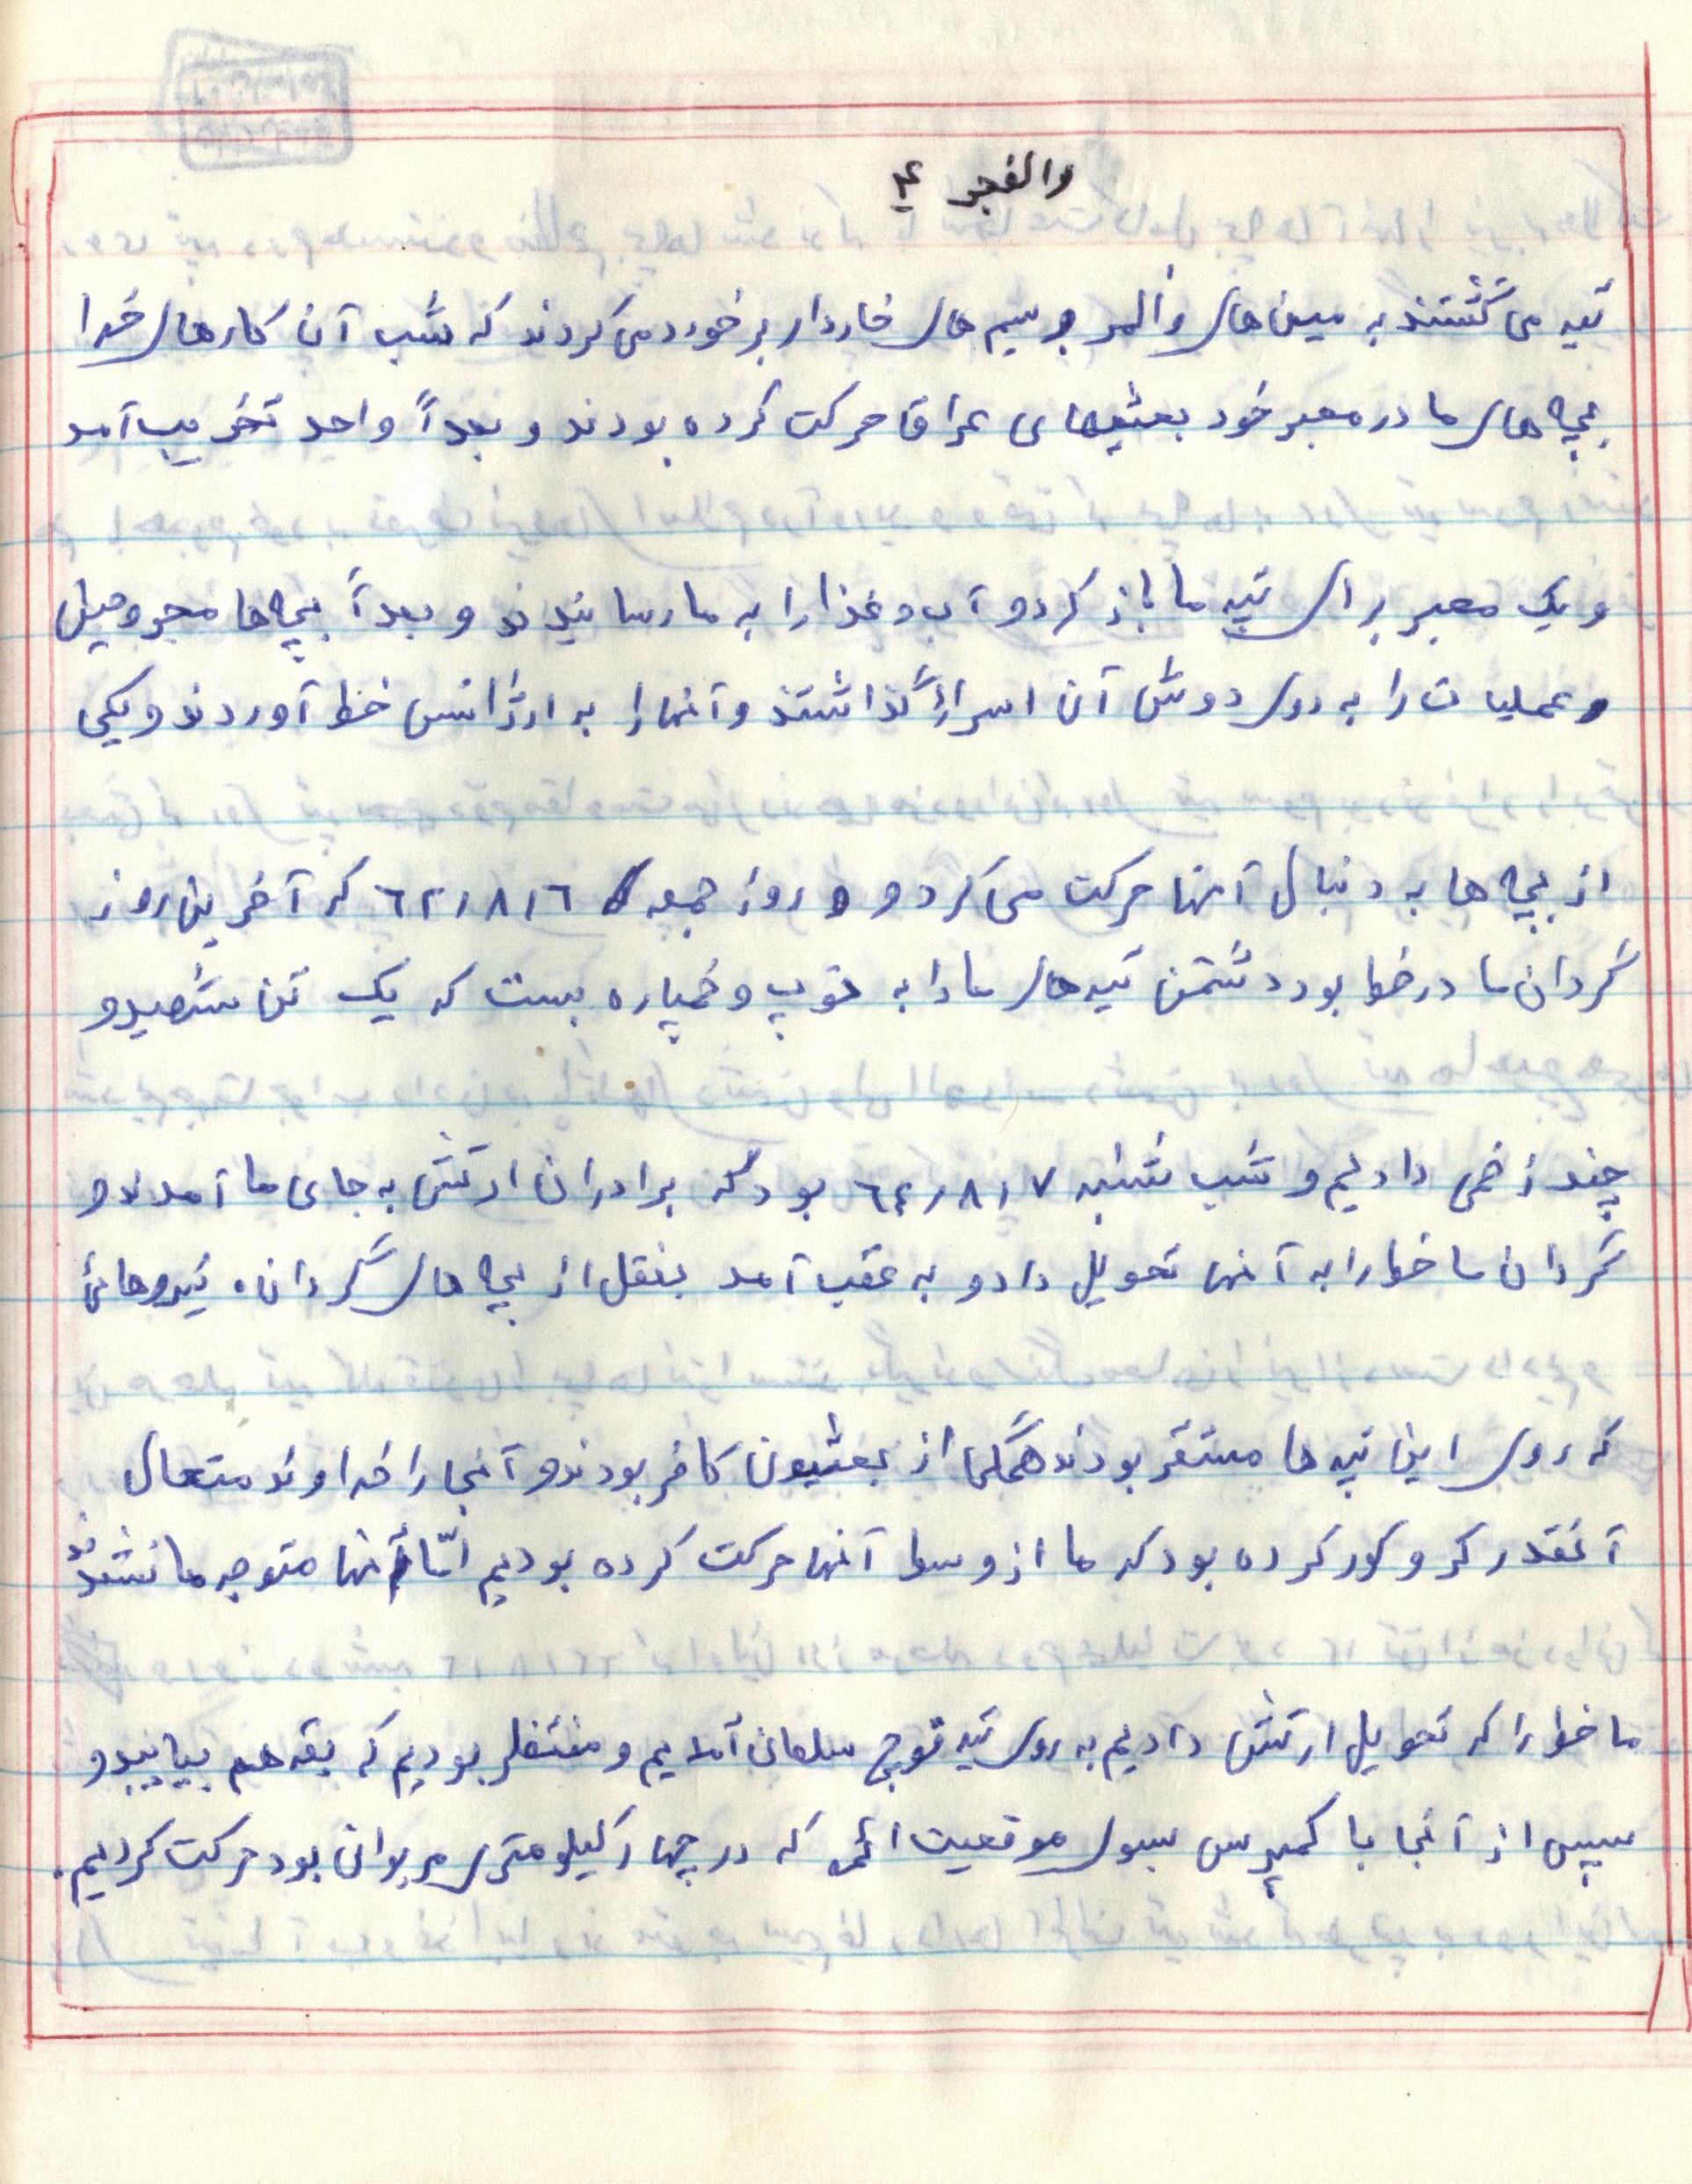 والفجر ۴
تپه می گشتند به مین های والمر و سیم های خاردار برخورد می کردند که شب آن کارهای خدا
بچه های ما در معبر خود بعثیهای عراق حرکت کرده بودند و بعداً واحد تخریب آمد
و یک معبر برای تپه ما باز کرد و آب و غذا را به ما رسانیدند و بعداً بچه ها مجروحین
و عملیات را به روی دوش آن اسرا گذاشتند و آنها را به اورژانس خط آوردند و یکی
از بچه ها به دنبال آنها حرکت می کرد و روز جمعه ٦٢/٨/٦ که آخرین روز
گردان ما در خط بود دشمن تپه های ما را به توپ و خمپاره بست که یک تن شهید و
چند زخمی دادیم و شب شنبه ٦٢/٨/٧ بود که برادران ارتش به جای ما آمدند و
گردان ما خط را به آنها تحویل داد و به عقب آمد بنقل از بچه های گردان. نیروهائی
که روی این تپه ها مستقر بودند همگی از بعثیون کافر بودند و آنجا را خداوند متعال
آنقدر کر و کور کرده بود که ما از وسط آنها حرکت کرده بودیم امّا آنها متوجه ما نشدند
ما خط را که تحویل ارتش دادیم به روی تپه قوچ سلطان آمدیم و منتظر بودیم که بقیه هم بیایند و
سپس از آنجا با کمپرس بسوی موقعیت که در چهار کیلومتری مریوان بود حرکت کردیم.